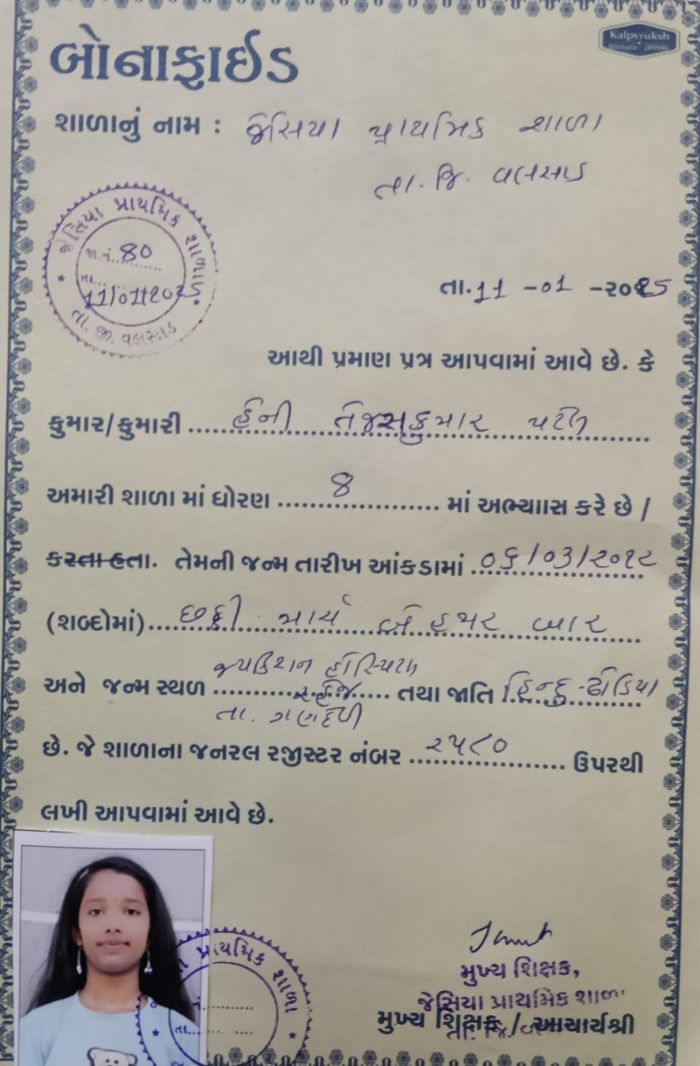 બોનાફાઈડ
Kalpvruksh
શાળાનું નામ : જેસિયા પ્રાથમિક શાળા
તા. જિ. વલસાડ
જેસિયા પ્રાથમિક શાળા
જા.નં. 80
તા. 11/01/2025
તા. જી. વલસાડ
તા. 11 -01 -૨૦૨5
આથી પ્રમાણ પત્ર આપવામાં આવે છે. કે
કુમાર/કુમારી હેની તેજસકુમાર પટેલ
અમારી શાળા માં ધોરણ 8 માં અભ્યાાસ કરે છે /
કરતા હતા. તેમની જન્મ તારીખ આંકડામાં ૦૬/૦૩/૨૦૧૨
(શબ્દોમાં) છઠ્ઠી માર્ચ બે હજાર બાર
જયકિશન હોસ્પિટલ
અને જન્મ સ્થળ તથા જાતિ હિન્દુ-ઢોડિયા
તા. ગણદેવી
છે. જે શાળાના જનરલ રજીસ્ટર નંબર ૨૫૮૦ ઉપરથી
લખી આપવામાં આવે છે.
પ્રાથમિક શાળા
નં.
તા.
મુખ્ય શિક્ષક,
જેસિયા પ્રાથમિક શાળા
મુખ્ય શિક્ષક / આચાર્યશ્રી
તા. જિ.